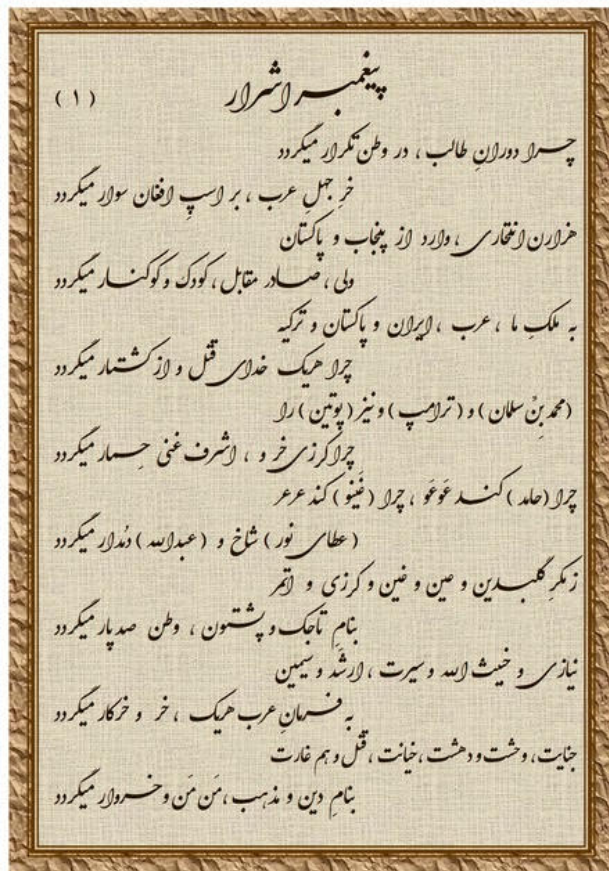 پیغمبر اشرار
( ۱ )
چرا دورانِ طالب ، در وطن تکرار میگردد
خرِ جهلِ عرب ، بر اسپِ افغان سوار میگردد
هزارن انتحاری ، وارد از پنجاب و پاکستان
ولی ، صادر مقابل ، کودک و کوکنار میگردد
به ملکِ ما ، عرب ، ایران و پاکستان و ترکیه
چرا هریک خدای قتل و از کشتار میگردد
(محمد بِنْ سلمان) و (ترامپ) و نیز (پوتین) را
چرا کرزی خر و ، اشرف غنی حمار میگردد
چرا (حامد) کند عَوعَو ، چرا (غَینو) کند عرعر
(عطای نور) شاخ و (عبدالله) دُمدار میگردد
ز مکرِ گلبدین و عین و غین و کرزی و اتمر
بنامِ تاجک و پشتون ، وطن صد پار میگردد
نیازی و خبیث الله و سیرت ، ارشَد و سیمین
به فرمانِ عرب هریک ، خر و خرکار میگردد
جنایت ، وحشت و دهشت ، خیانت ، قتل و هم غارت
بنامِ دین و مذهب ، مَن مَن و خروار میگردد